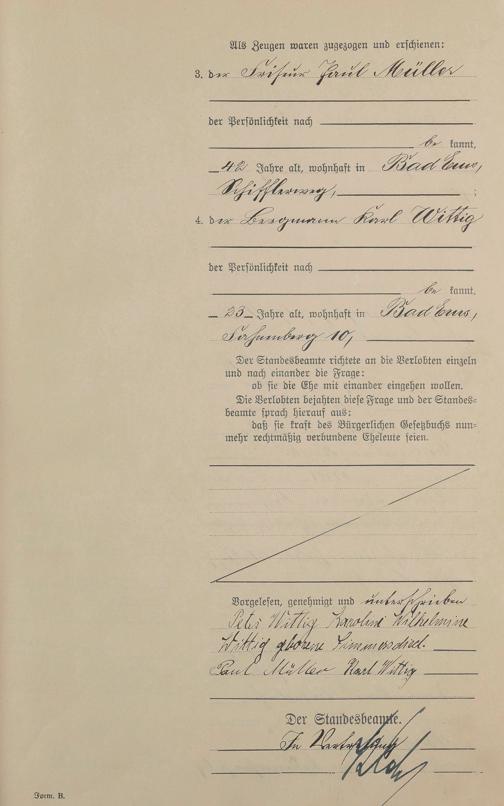 Als Zeugen waren zugezogen und erschienen:
3. der Friseur Paul Müller
der Persönlichkeit nach
be kannt,
42 Jahre alt, wohnhaft in Bad Ems,
Schifflerweg, ;
4. der Bergmann Karl Wittig
der Persönlichkeit nach
be kannt,
23 Jahre alt, wohnhaft in Bad Ems,
10,
Der Standesbeamte richtete an die Verlobten einzeln
und nach einander die Frage:
ob sie die Ehe mit einander eingehen wollen.
Die Verlobten bejahten diese Frage und der Standes-
beamte sprach hierauf aus:
daß sie kraft des Bürgerlichen Gesetzbuchs nun-
mehr rechtmäßig verbundene Eheleute seien.
Vorgelesen, genehmigt und unterschrieben
Peter Wittig Karoline Wilhelmine
Wittig geborene
Paul Müller Karl Wittig
Der Standesbeamte.
In Vertretung
Form. B.